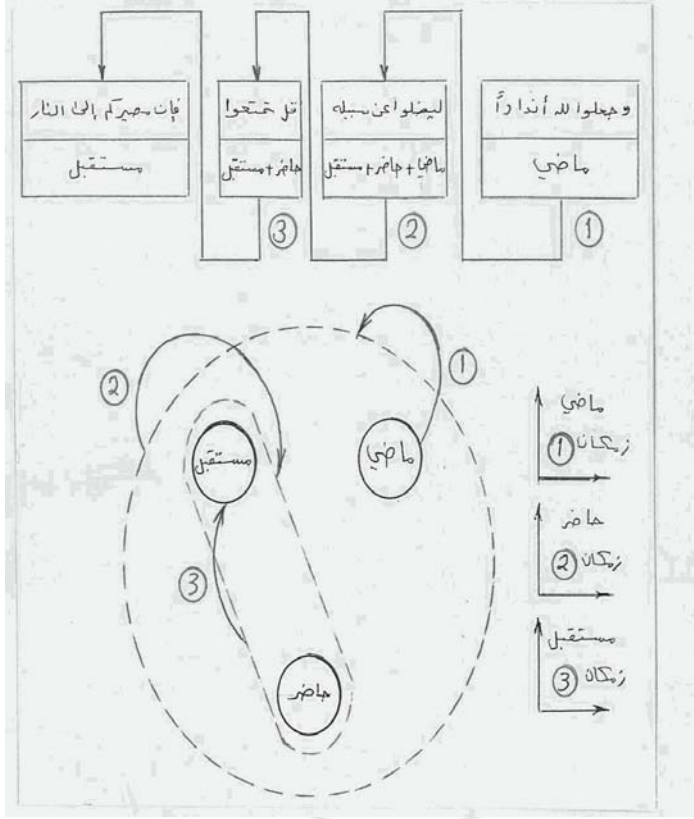 وجعلوا لله أنداداً
ماضي
ليضلوا عن سبيله
ماضي + حاضر + مستقبل
قل تمتعوا
حاضر + مستقبل
فإن مصيركم إلى النار
مستقبل
1
2
3
1
2
3
ماضي
مستقبل
حاضر
ماضي
زمكان 1
حاضر
زمكان 2
مستقبل
زمكان 3